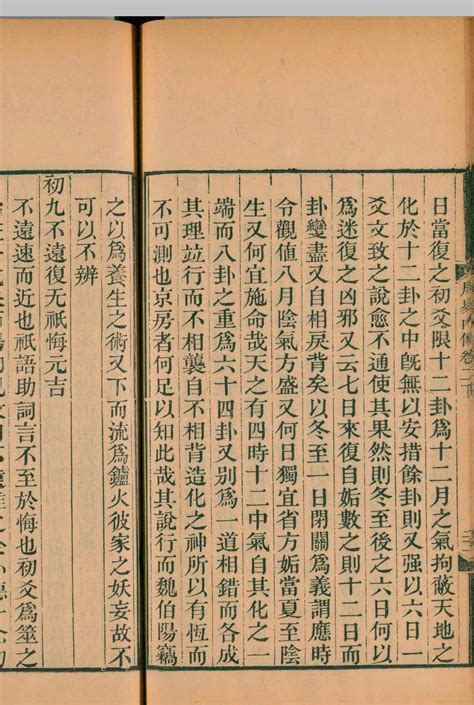 日當復之初爻限十二卦爲十二月之氣拘蔽天地之
化於十二卦之中旣無以安措餘卦則又强以六日一
爻文致之說愈不通使其果然則冬至後之六日何以
爲迷復之凶邪又云七日來復自姤數之則十二日而
卦變盡又自相戾背矣以冬至一日閉關爲義謂應時
令觀値八月陰氣方盛又何日獨宜省方姤當夏至陰
生又何宜施命哉天之有四時十二中氣自其化之一
端而八卦之重爲六十四卦又別爲一道相錯而各成
其理竝行而不相襲自不相背造化之神所以有恆而
不可測也京房者何足以知此哉其說行而魏伯陽竊
之以爲養生之術又下而流爲鑪火彼家之妖妄故不
可以不辨
初九不遠復无祇悔元吉
不遠速而近也祇語助詞言不至於悔也初爻爲筮之